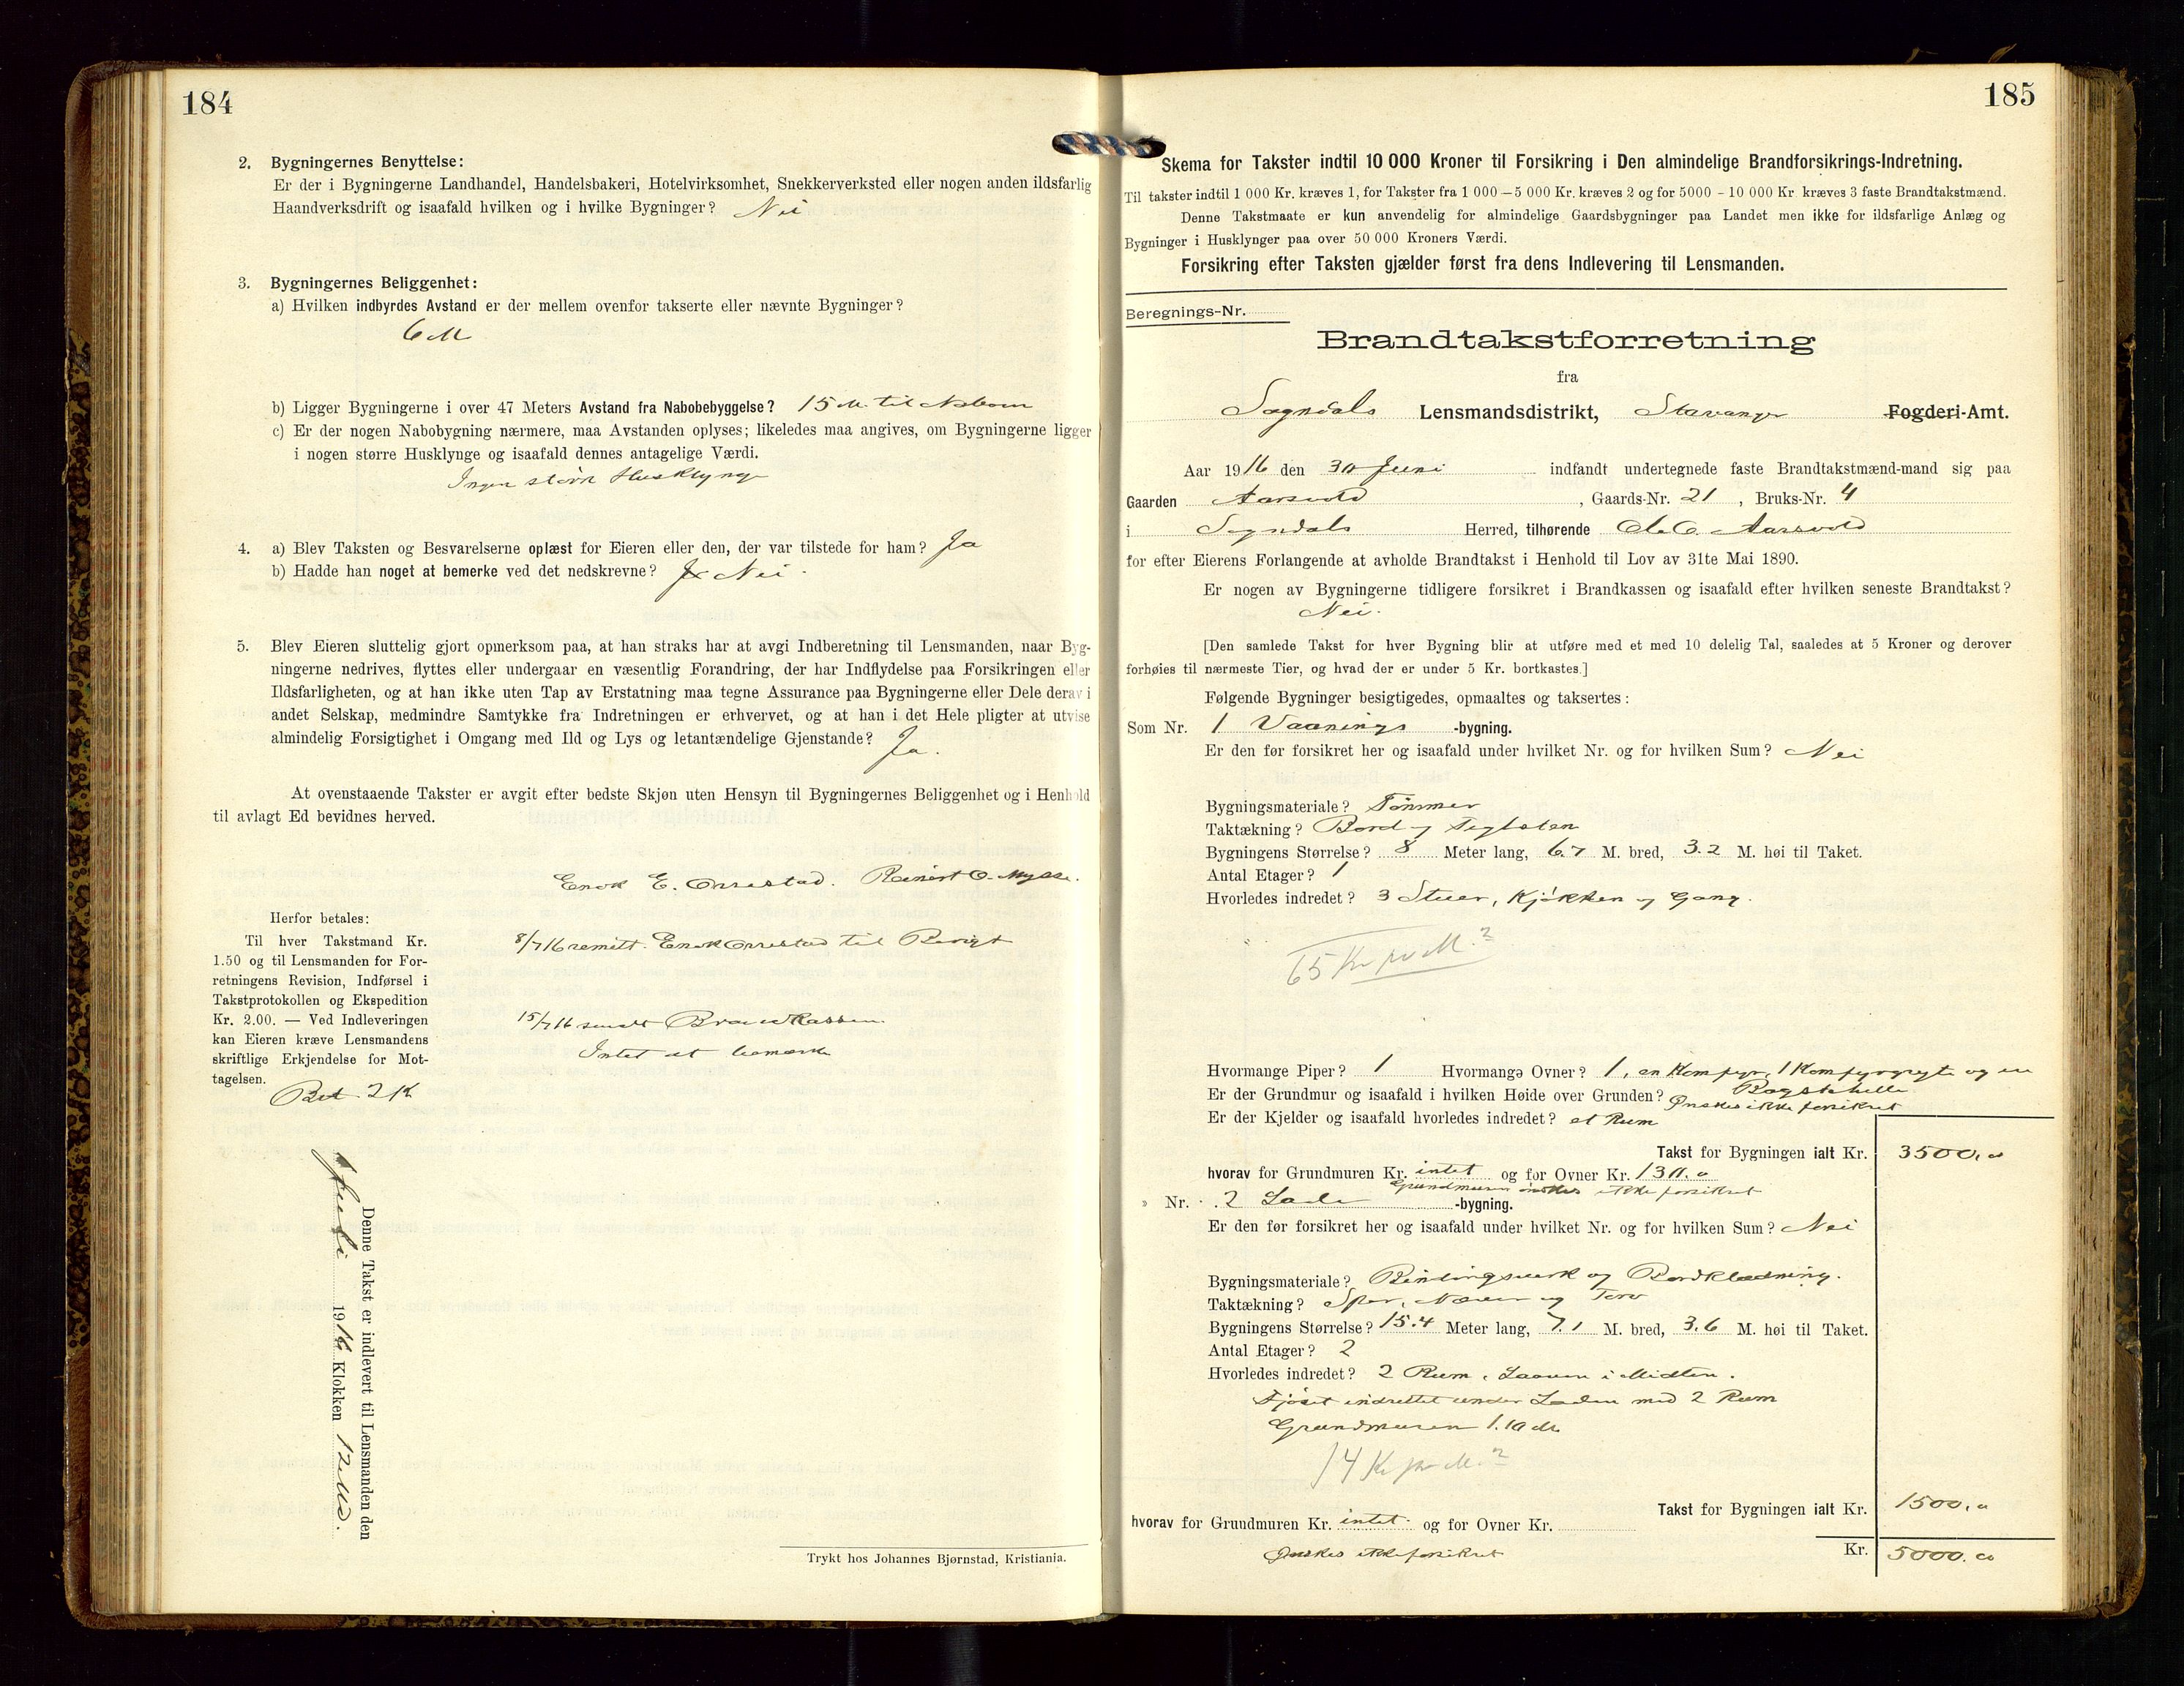 184
2. Bygningernes Benyttelse:
Er der i Bygningerne Landhandel, Handelsbakeri, Hotelvirksomhet, Snekkerverksted eller nogen anden ildsfarlig
Haandverksdrift og isaafald hvilken og i hvilke Bygninger? Nei
3. Bygningernes Beliggenhet:
a) Hvilken indbyrdes Avstand er der mellem ovenfor takserte eller nævnte Bygninger?
6 M
b) Ligger Bygningerne i over 47 Meters Avstand fra Nabobebyggelse? 15 M. til Naboen
c) Er der nogen Nabobygning nærmere, maa Avstanden oplyses; likeledes maa angives, om Bygningerne ligger
i nogen større Husklynge og isaafald dennes antagelige Værdi.
Ingen større Husklynge
4. a) Blev Taksten og Besvarelserne oplæst for Eieren eller den, der var tilstede for ham? Ja
b) Hadde han noget at bemerke ved det nedskrevne? Nei.
5. Blev Eieren sluttelig gjort opmerksom paa, at han straks har at avgi Indberetning til Lensmanden, naar Byg-
ningerne nedrives, flyttes eller undergaar en væsentlig Forandring, der har Indflydelse paa Forsikringen eller
Ildsfarligheten, og at han ikke uten Tap av Erstatning maa tegne Assurance paa Bygningerne eller Dele derav i
andet Selskap, medmindre Samtykke fra Indretningen er erhvervet, og at han i det Hele pligter at utvise
almindelig Forsigtighet i Omgang med Ild og Lys og letantændelige Gjenstande? Ja.
At ovenstaaende Takster er avgit efter bedste Skjøn uten Hensyn til Bygningernes Beliggenhet og i Henhold
til avlagt Ed bevidnes herved.
Enok E. Orrestad. Reinert O. Mysse.
Herfor betales:
Til hver Takstmand Kr.
1.50 og til Lensmanden for For-
retningens Revision, Indførsel i
Takstprotokollen og Ekspedition
Kr. 2.00. — Ved Indleveringen
kan Eieren kræve Lensmandens
skriftlige Erkjendelse for Mot-
tagelsen.
Bet. 2 K
8/7 16 remitt. Enok Orrestad til
15/7 16 sendt Brandkassen
Intet at bemærke
Denne Takst er indlevert til Lensmanden den
Juli 1916 Klokken 12 Md.
Trykt hos Johannes Bjørnstad, Kristiania.
185
Skema for Takster indtil 10 000 Kroner til Forsikring i Den almindelige Brandforsikrings-Indretning.
Til takster indtil 1 000 Kr. kræves 1, for Takster fra 1 000 — 5 000 Kr. kræves 2 og for 5000 - 10 000 Kr kræves 3 faste Brandtakstmænd.
Denne Takstmaate er kun anvendelig for almindelige Gaardsbygninger paa Landet men ikke for ildsfarlige Anlæg og
Bygninger i Husklynger paa over 50 000 Kroners Værdi.
Forsikring efter Taksten gjælder først fra dens Indlevering til Lensmanden.
Beregnings-Nr.
Brandtakstforretning
fra
Sogndals Lensmandsdistrikt, Stavanger Fogderi-Amt.
Aar 1916 den 30 Juni indfandt undertegnede faste Brandtakstmænd-mand sig paa
Gaarden Aarsvold, Gaards-Nr. 21, Bruks-Nr. 4
i Sogndals Herred, tilhørende Ole O. Aarsvold
for efter Eierens Forlangende at avholde Brandtakst i Henhold til Lov av 31te Mai 1890.
Er nogen av Bygningerne tidligere forsikret i Brandkassen og isaafald efter hvilken seneste Brandtakst?
Nei.
[Den samlede Takst for hver Bygning blir at utføre med et med 10 delelig Tal, saaledes at 5 Kroner og derover
forhøies til nærmeste Tier, og hvad der er under 5 Kr. bortkastes.]
Følgende Bygninger besigtigedes, opmaaltes og taksertes:
Som Nr. 1 Vaanings-bygning.
Er den før forsikret her og isaafald under hvilket Nr. og for hvilken Sum? Nei
Bygningsmateriale? Tømmer
Taktækning? Bord og Teglsten
Bygningens Størrelse? 8 Meter lang, 6.7 M. bred, 3.2 M. høi til Taket.
Antal Etager? 1
Hvorledes indredet? 3 Stuer, Kjøkken og Gang.
65 Kr pr M.²
Hvormange Piper? 1 Hvormange Ovner? 1, en Komfyr, 1 Komfyrgryte og en
Bagstehelle
Er der Grundmur og isaafald i hvilken Høide over Grunden? Ønskes ikke forsikret
Er der Kjelder og isaafald hvorledes indredet? et Rum
Takst for Bygningen ialt Kr. 3500,00
hvorav for Grundmuren Kr. intet og for Ovner Kr. 130.00
Grundmuren ønskes ikke forsikret
» Nr. 2 Lade-bygning.
Er den før forsikret her og isaafald under hvilket Nr. og for hvilken Sum? Nei
Bygningsmateriale? Bindingsverk og Bordklædning.
Taktækning? Spær, Næver og Torv
Bygningens Størrelse? 15.4 Meter lang, 7.1 M. bred, 3.6 M. høi til Taket.
Antal Etager? 2
Hvorledes indredet? 2 Rum, Laaven i Midten.
Fjøset indrettet under Laden med 2 Rum
Grundmuren 1.10 M.
14 Kr pr M.²
Takst for Bygningen ialt Kr. 1500.00
hvorav for Grundmuren Kr. intet og for Ovner Kr.
Ønskes ikke forsikret
Kr. 5000.00